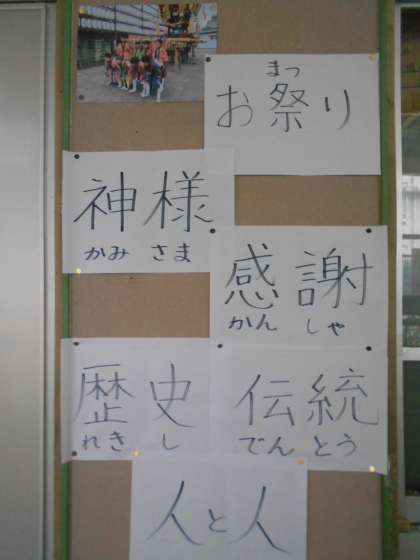 まつ
お祭り
神様
かみさま
感謝
かんしゃ
歴史
れきし
伝統
でんとう
人と人